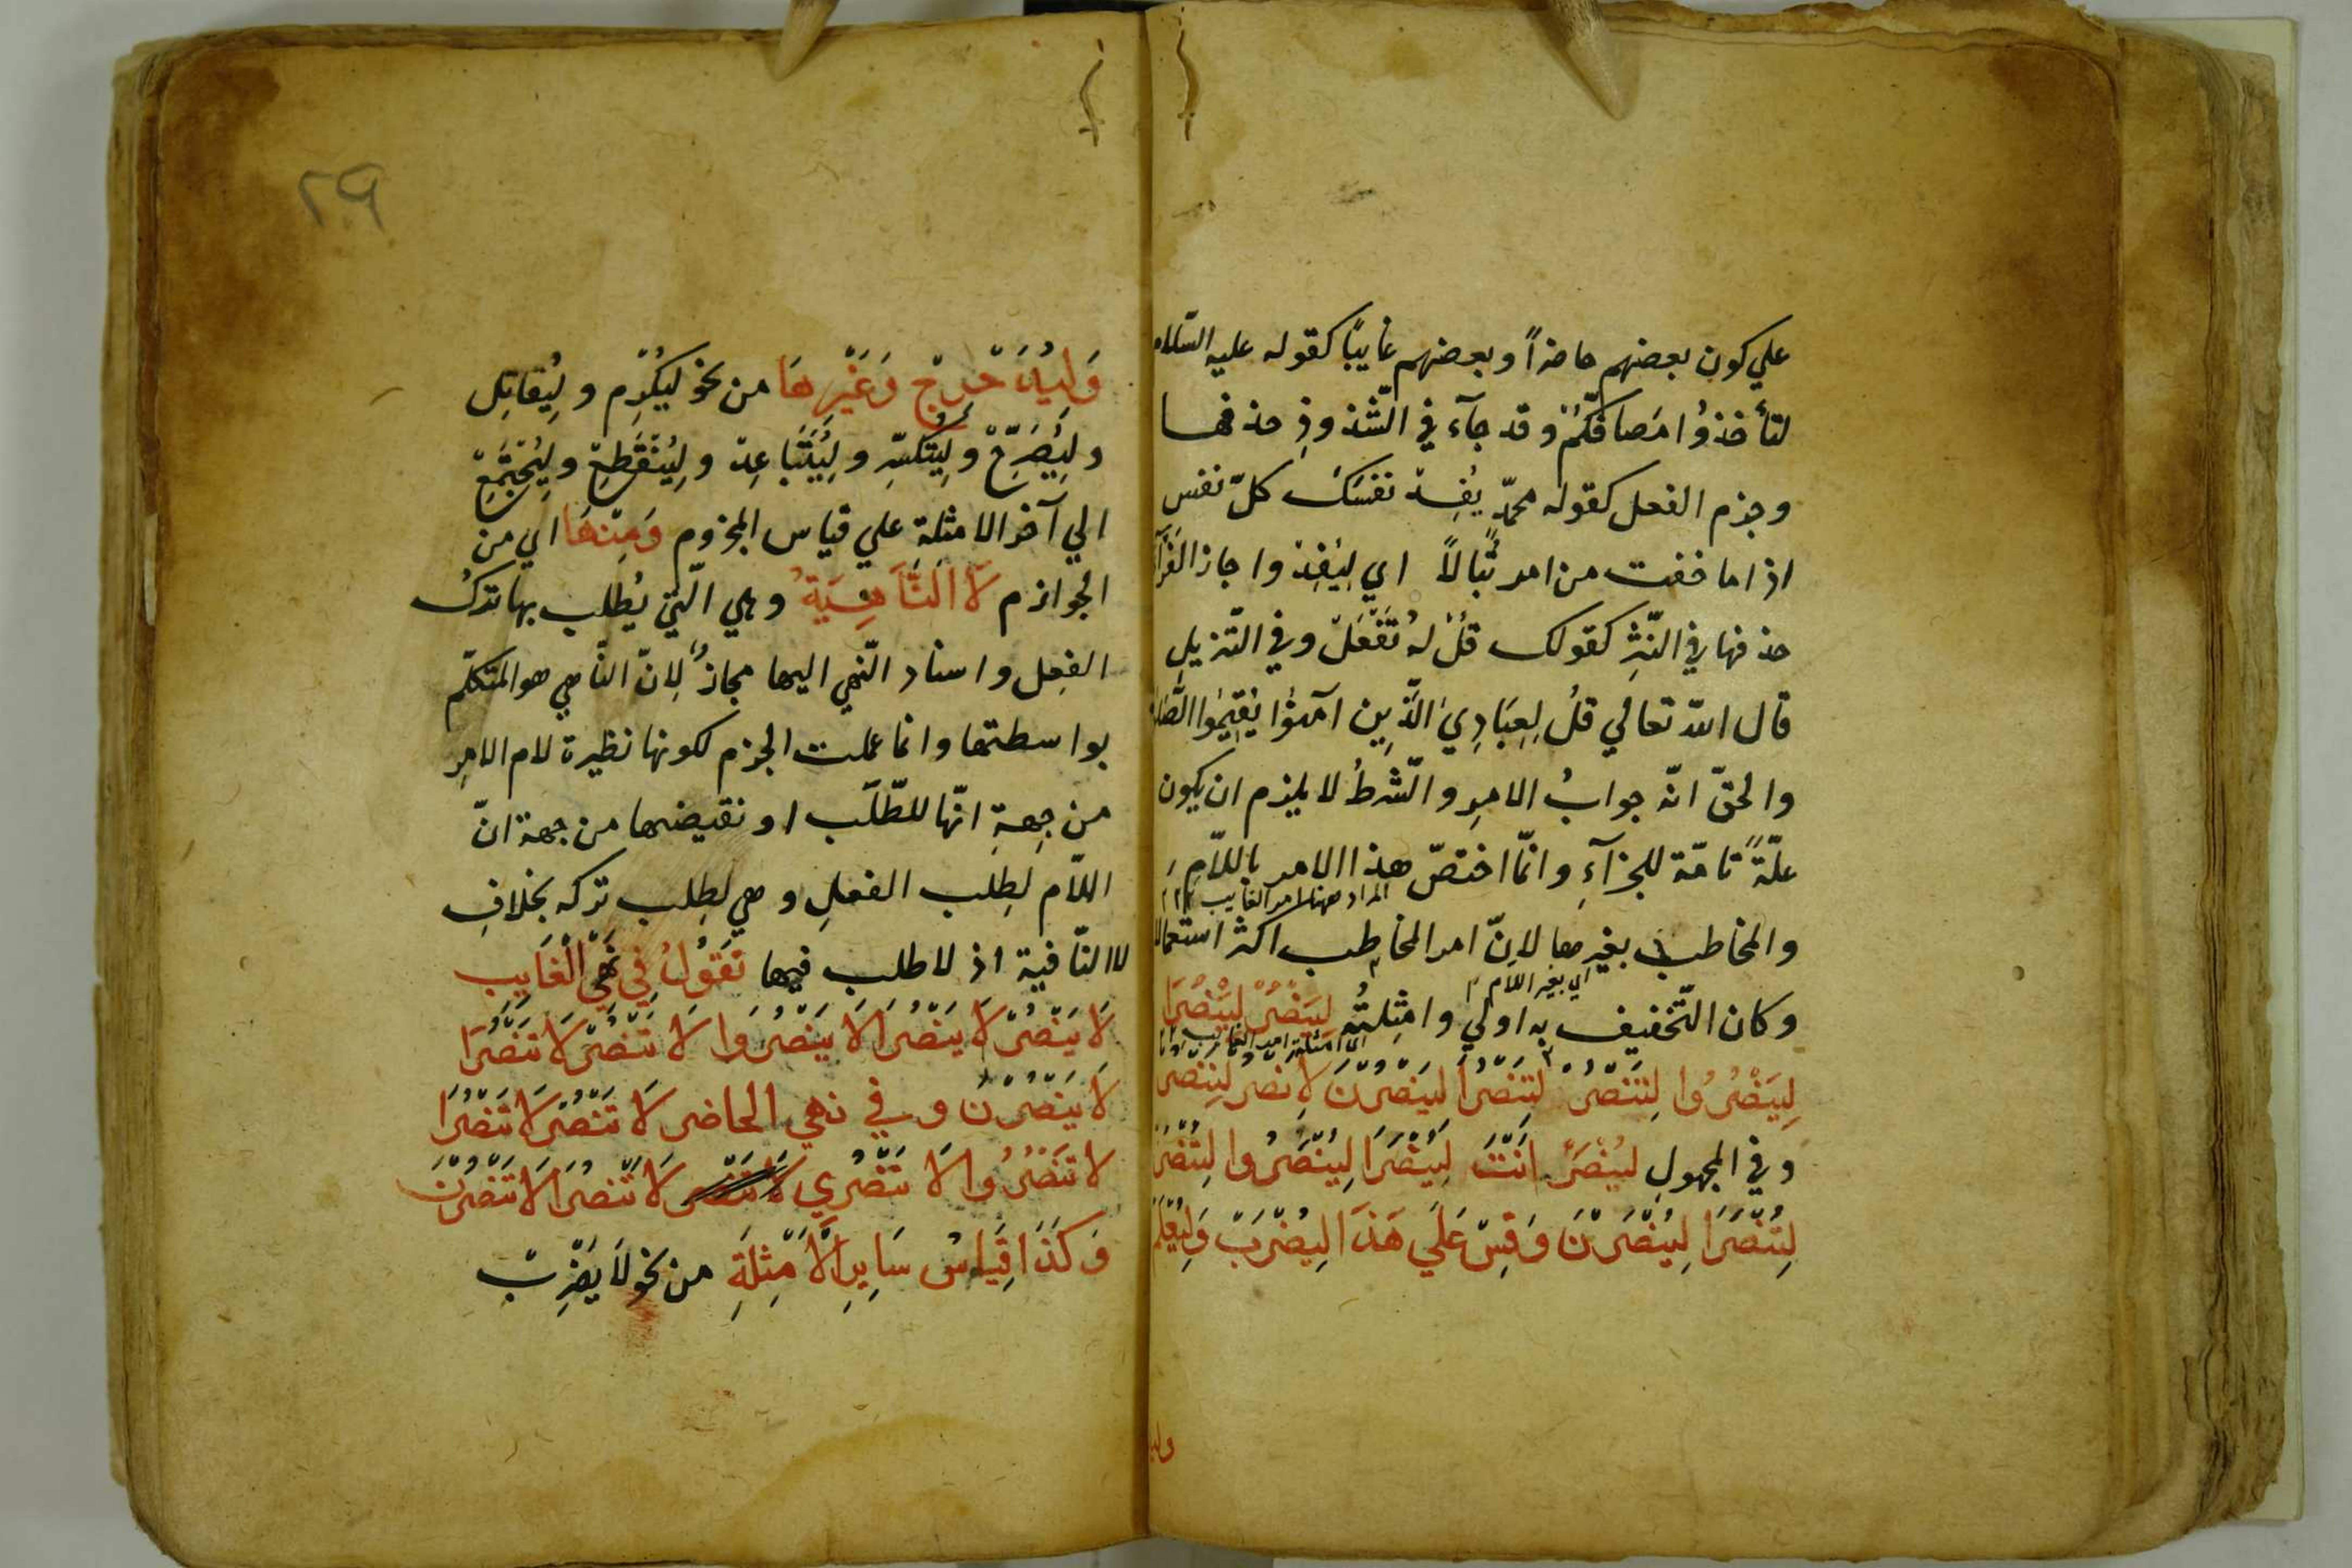 علي كون بعضهم حاضراً وبعضهم غايبًا كقوله عليه السّلام
لتأخذوُا مَصافّكُمْ وقد جآء في الشّذوذِ حذفها
وجزم الفعل كقوله محمدّ يُفِدْ نفسَكَ كلّ نفس
اذا ما خفت من امرٍ تُبالاً اي لِيُفِدْ واجاز الفرّآ
حذفها في النّثرِ كقولك قُلْ لهُ تَفْعَلْ وفي التّنزيلِ
قال اللّه تعالي قُلْ لِعِبَادِيَ الَّذِينَ آمَنُوْا يُقِيْمُوا الصَّلٰوة
والحقّ انّه جوابُ الامرِ والشّرطُ لا يلزم ان يكون
علّةً تامّة للجزآءِ وانّما اختصّ هذا الامر باللاّم
المراد ههنا امر الغايب
والمخاطب بغيرها لانّ امر المخاطب اكثر استعمالا
اي بغير اللام
وكان التّخفيف به اولي وامثِلتُه لِيَنْصُرْ لِيَنْصُرَا
اي امثلة امر الغايب
لِيَنْصُرُوا لِتَنْصُرْ لِتَنْصُرَا لِيَنْصُرْنَ لِاَنْصُرْ لِنَنْصُرْ
وفي المجهولِ لِيُنْصَرْ اَنْتَ لِيُنْصَرَا لِيُنْصَرُوا لِتُنْصَرْ
لِتُنْصَرَا لِيُنْصَرْنَ وَقِسْ عَلَي هَذَا لِيَضْرِبْ وَلِيَعْلَمْ
وليد
٢٩
وَلِيُدَحْرِجْ وَغَيْرِهَا من نحو لِيُكْرِم ولِيُقاتِل
ولِيُفَرِّحْ ولِيَتَكَسَّرْ ولِيَتَبَاعِدْ ولِيَنْقَطِعْ ولِيَجْتَمِعْ
الي آخر الامثلة علي قياس المجزوم وَمِنْهَا اي من
الجوازم لاَ النَّاهِيَةُ وهي الّتي يُطلب بها تركُ
الفِعل واسناد النّهي اليها مجازٌ لِانّ النّاهي هو المتكلّم
بواسطتها وانما عملت الجزم لكونها نظيرة لام الامرِ
من جِهةِ انّها للطّلَب او نقيضها من جهة انّ
اللاّم لطِلب الفعلِ وهي لطِلب تركه بخلافِ
لا النّافية اذ لا طلب فيها تَقُوْلُ فِي نَهْيِ الْغَايِب
لاَ يَنْصُرْ لاَ يَنْصُرَا لاَ يَنْصُرُوا لاَ تَنْصُرْ لاَ تَنْصُرَا
لاَ يَنْصُرْنَ وفي نهي الحاضر لاَ تَنْصُرْ لاَ تَنْصُرَا
لا تَنْصُرُوا لاَ تَنْصُرِي لا تنصر لاَ تَنْصُرَا لاَ تَنْصُرْنَ
وَكَذَا قِيَاسُ سَايِرِ الْاَمْثِلَةِ من نحو لاَ يَضْرِبْ